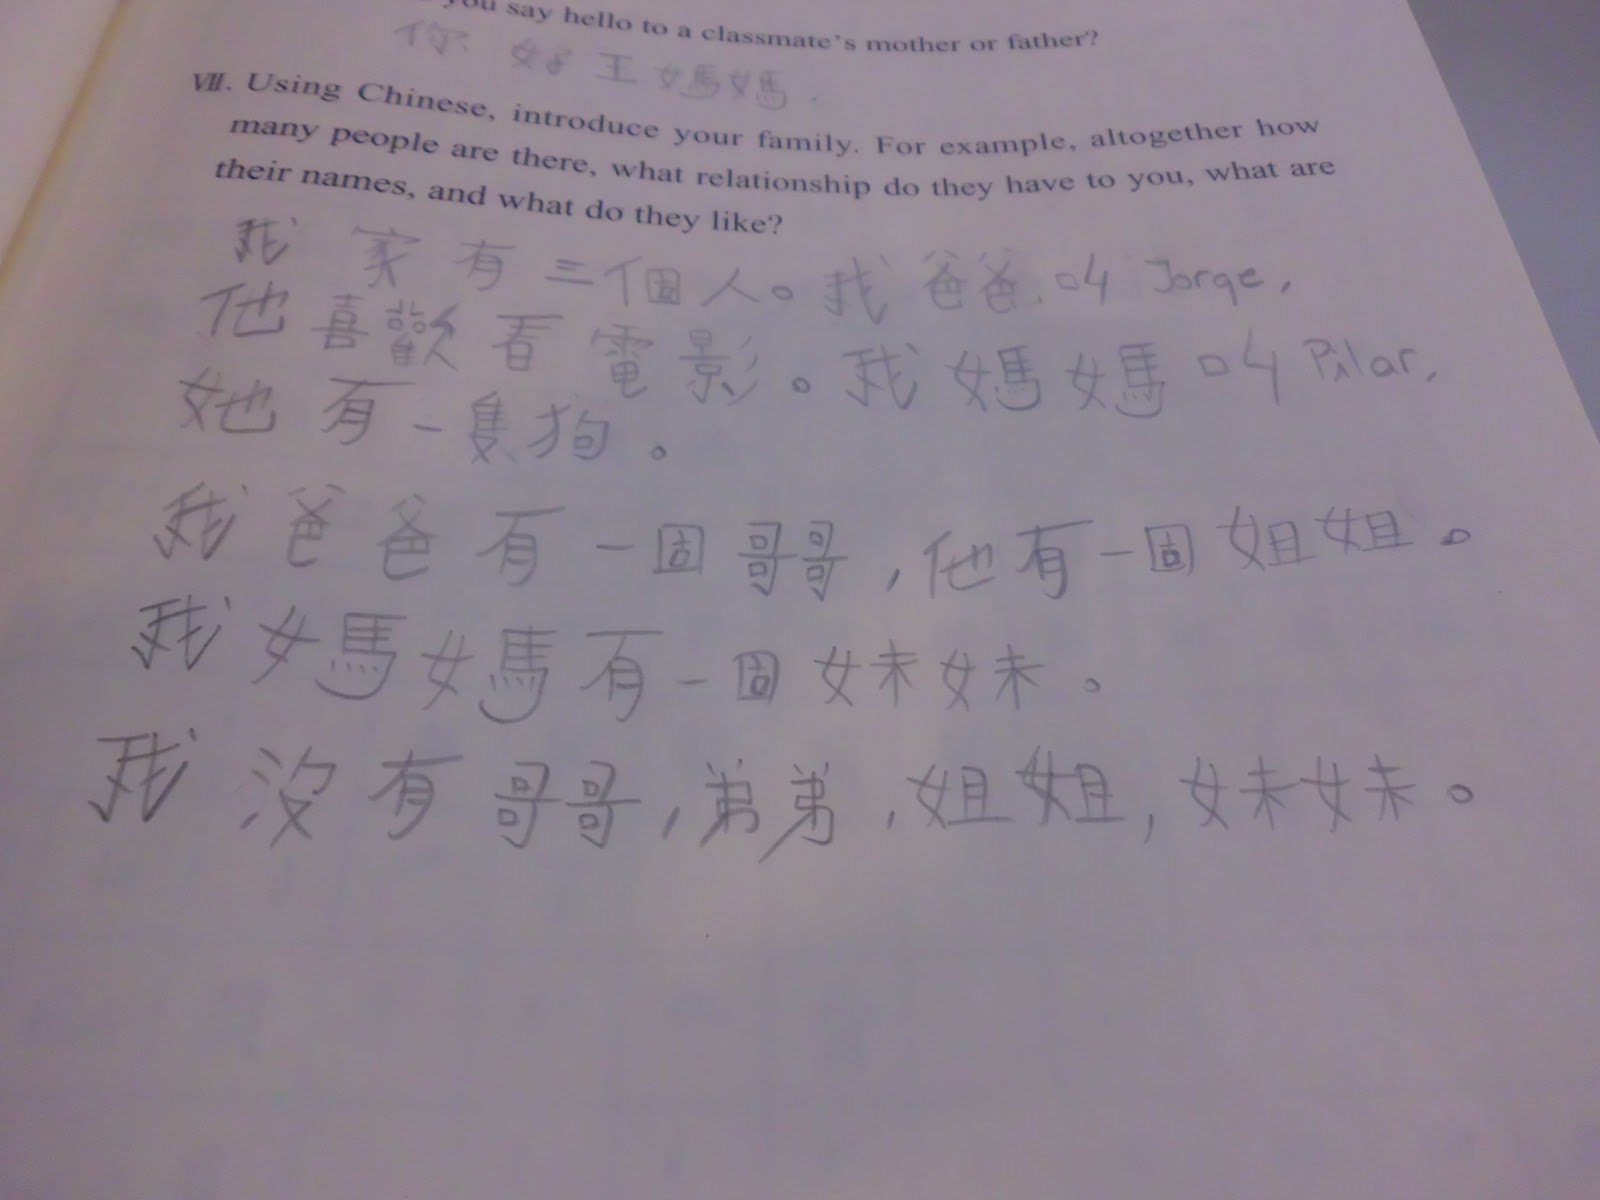 you say hello to a classmate's mother or father?
你好王媽媽.
Ⅶ. Using Chinese, introduce your family. For example, altogether how
many people are there, what relationship do they have to you, what are
their names, and what do they like?
我家有三個人。我爸爸叫 Jorge,
他喜歡看電影。我媽媽叫 Pilar,
她有一隻狗。
我爸爸有一固哥哥,他有一固姐姐。
我媽媽有一固妹妹。
我沒有哥哥,弟弟,姐姐,妹妹。